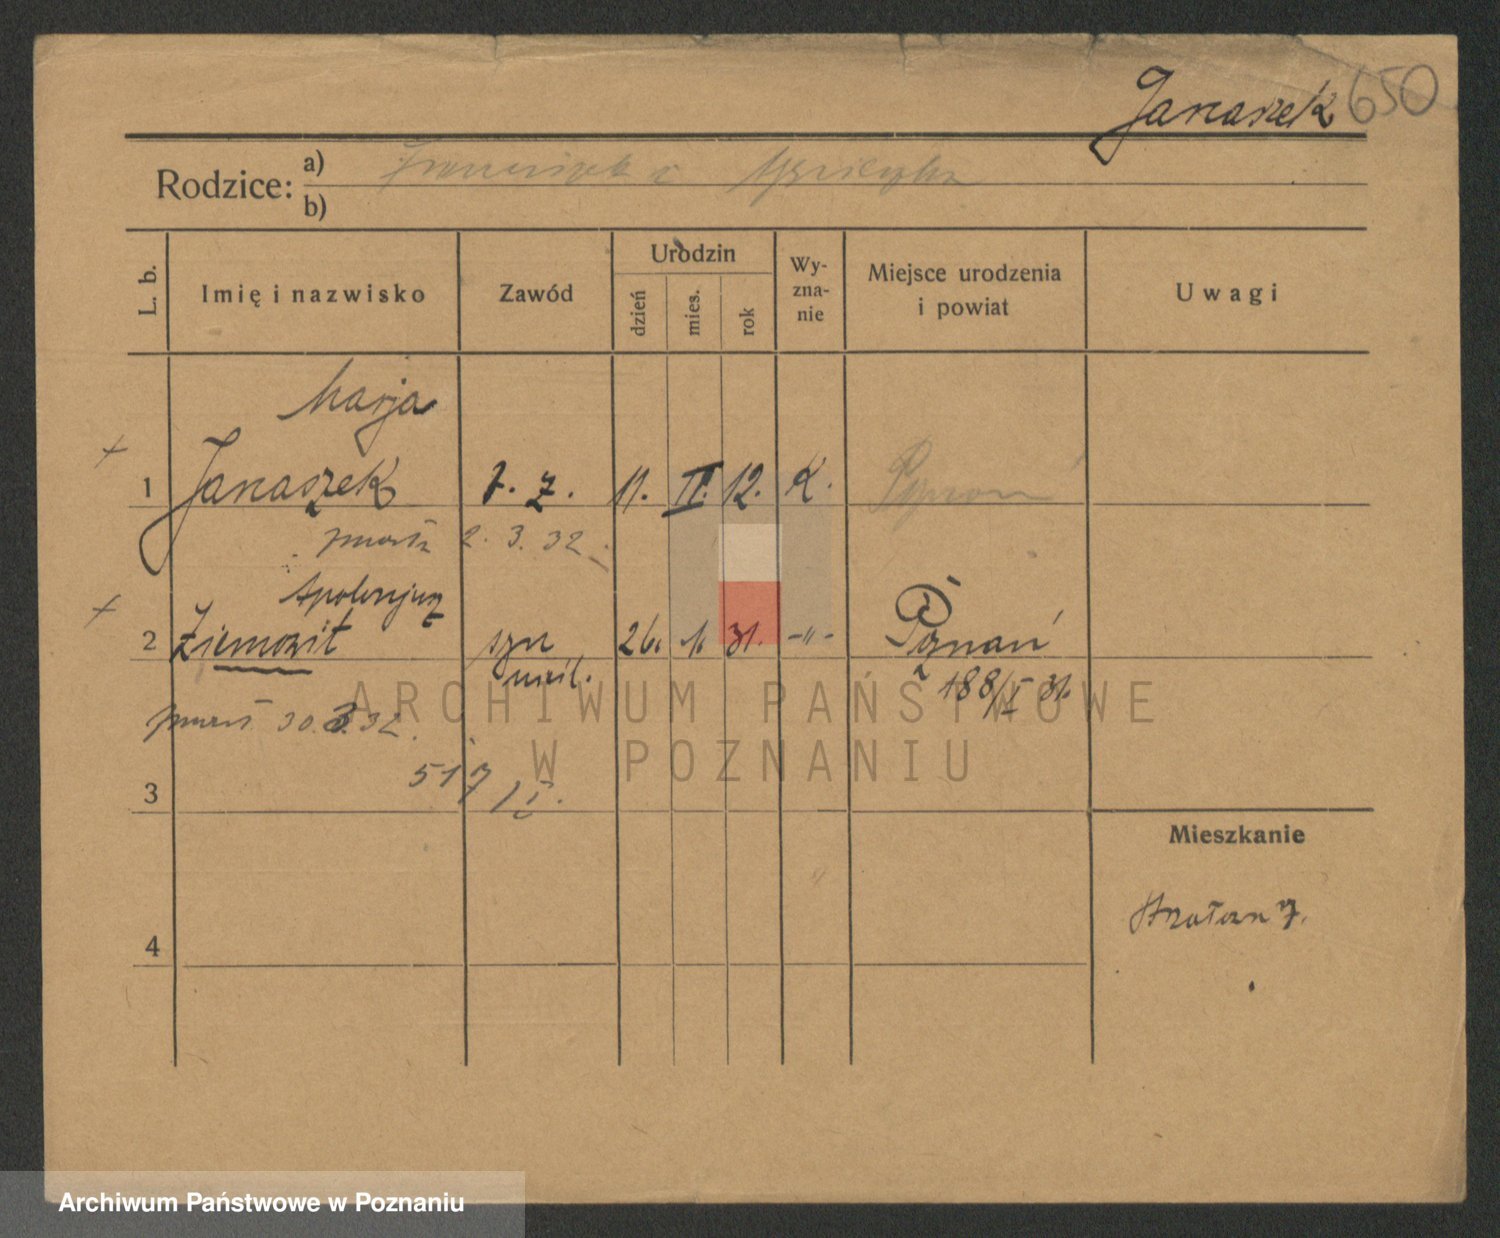 Janaszek 650
Rodzice: a) Franciszek i
b)
L. b.
Imię i nazwisko
Zawód
Urodzin
dzień
mies.
rok
Wy-
zna-
nie
Miejsce urodzenia
i powiat
Uwagi
Marja
1 Janaszek b. z. 11. II. 12. k.
zmarła 2. 3. 32
2 Ziemowit syn 26. 1. 31. -"- Poznań
nieśl. 188/I 31.
zmarł 30. 3. 32.
517/I.
3
Mieszkanie
7.
4
ARCHIWUM PAŃSTWOWE
W POZNANIU
Archiwum Państwowe w Poznaniu